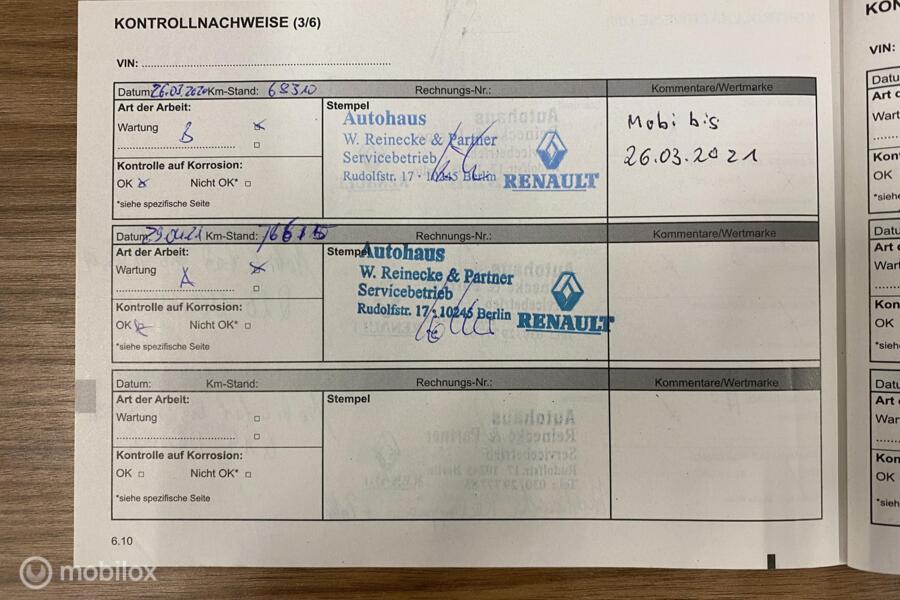 KONTROLLNACHWEISE (3/6)
VIN:
Datum: 26.03.2020 Km-Stand: 68310 Rechnungs-Nr.: Kommentare/Wertmarke
Art der Arbeit:
Wartung B
Kontrolle auf Korrosion:
OK Nicht OK*
*siehe spezifische Seite
Stempel
Autohaus
W. Reinecke & Partner
Servicebetrieb
Rudolfstr. 17 · 10245 Berlin
RENAULT
Mobi bis
26.03.2021
Datum: Km-Stand: Rechnungs-Nr.: Kommentare/Wertmarke
Art der Arbeit:
Wartung A
Kontrolle auf Korrosion:
OK Nicht OK*
*siehe spezifische Seite
Stempel
Autohaus
W. Reinecke & Partner
Servicebetrieb
Rudolfstr. 17 · 10245 Berlin
RENAULT
Datum: Km-Stand: Rechnungs-Nr.: Kommentare/Wertmarke
Art der Arbeit:
Wartung
Kontrolle auf Korrosion:
OK Nicht OK*
*siehe spezifische Seite
Stempel
6.10
mobilox
KON
VIN:
Datu
Art d
Wart
Kon
OK
*sieh
Datu
Art d
Wart
Kon
OK
*sieh
Datu
Art d
War
Kon
OK
*sieh